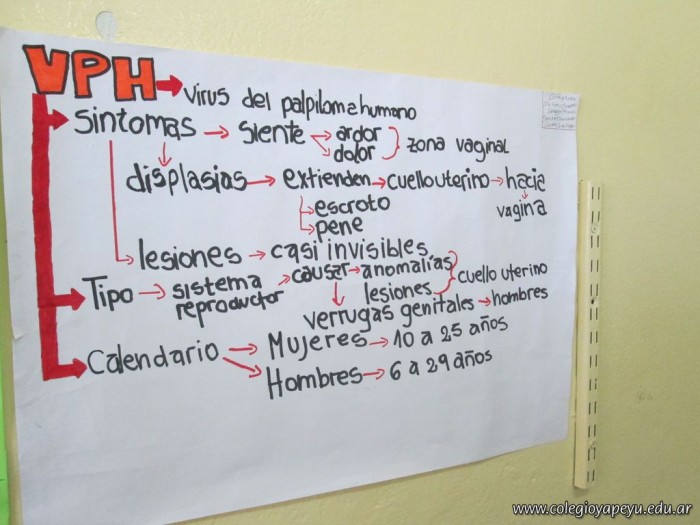 VPH → virus del palpiloma humano
Sintomas → siente → ardor
dolor } zona vaginal
displasias → extienden → cuello uterino → hacia
vagina
escroto
pene
lesiones → casi invisibles
Tipo → sistema reproductor → causar → anomalías
lesiones } cuello uterino
verrugas genitales → hombres
Calendario → Mujeres → 10 a 25 años
Hombres → 6 a 29 años
www.colegioyapeyu.edu.ar